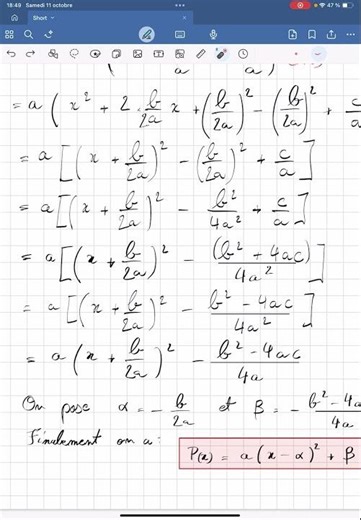 18:48 Samedi 11 octobre 47 %
Short
a a
= a ( x² + 2 · b/2a x + (b/2a)² − (b/2a)² + c/a
= a [(x + b/2a)² − (b/2a)² + c/a]
= a [(x + b/2a)² − b²/4a² + c/a]
= a [(x + b/2a)² − (b² + 4ac)/4a²]
= a [(x + b/2a)² − b² − 4ac/4a²]
= a (x + b/2a)² − b² − 4ac/4a
On pose α = − b/2a et β = − b² − 4a/4a
Finalement on a :
P(x) = a (x − α)² + β